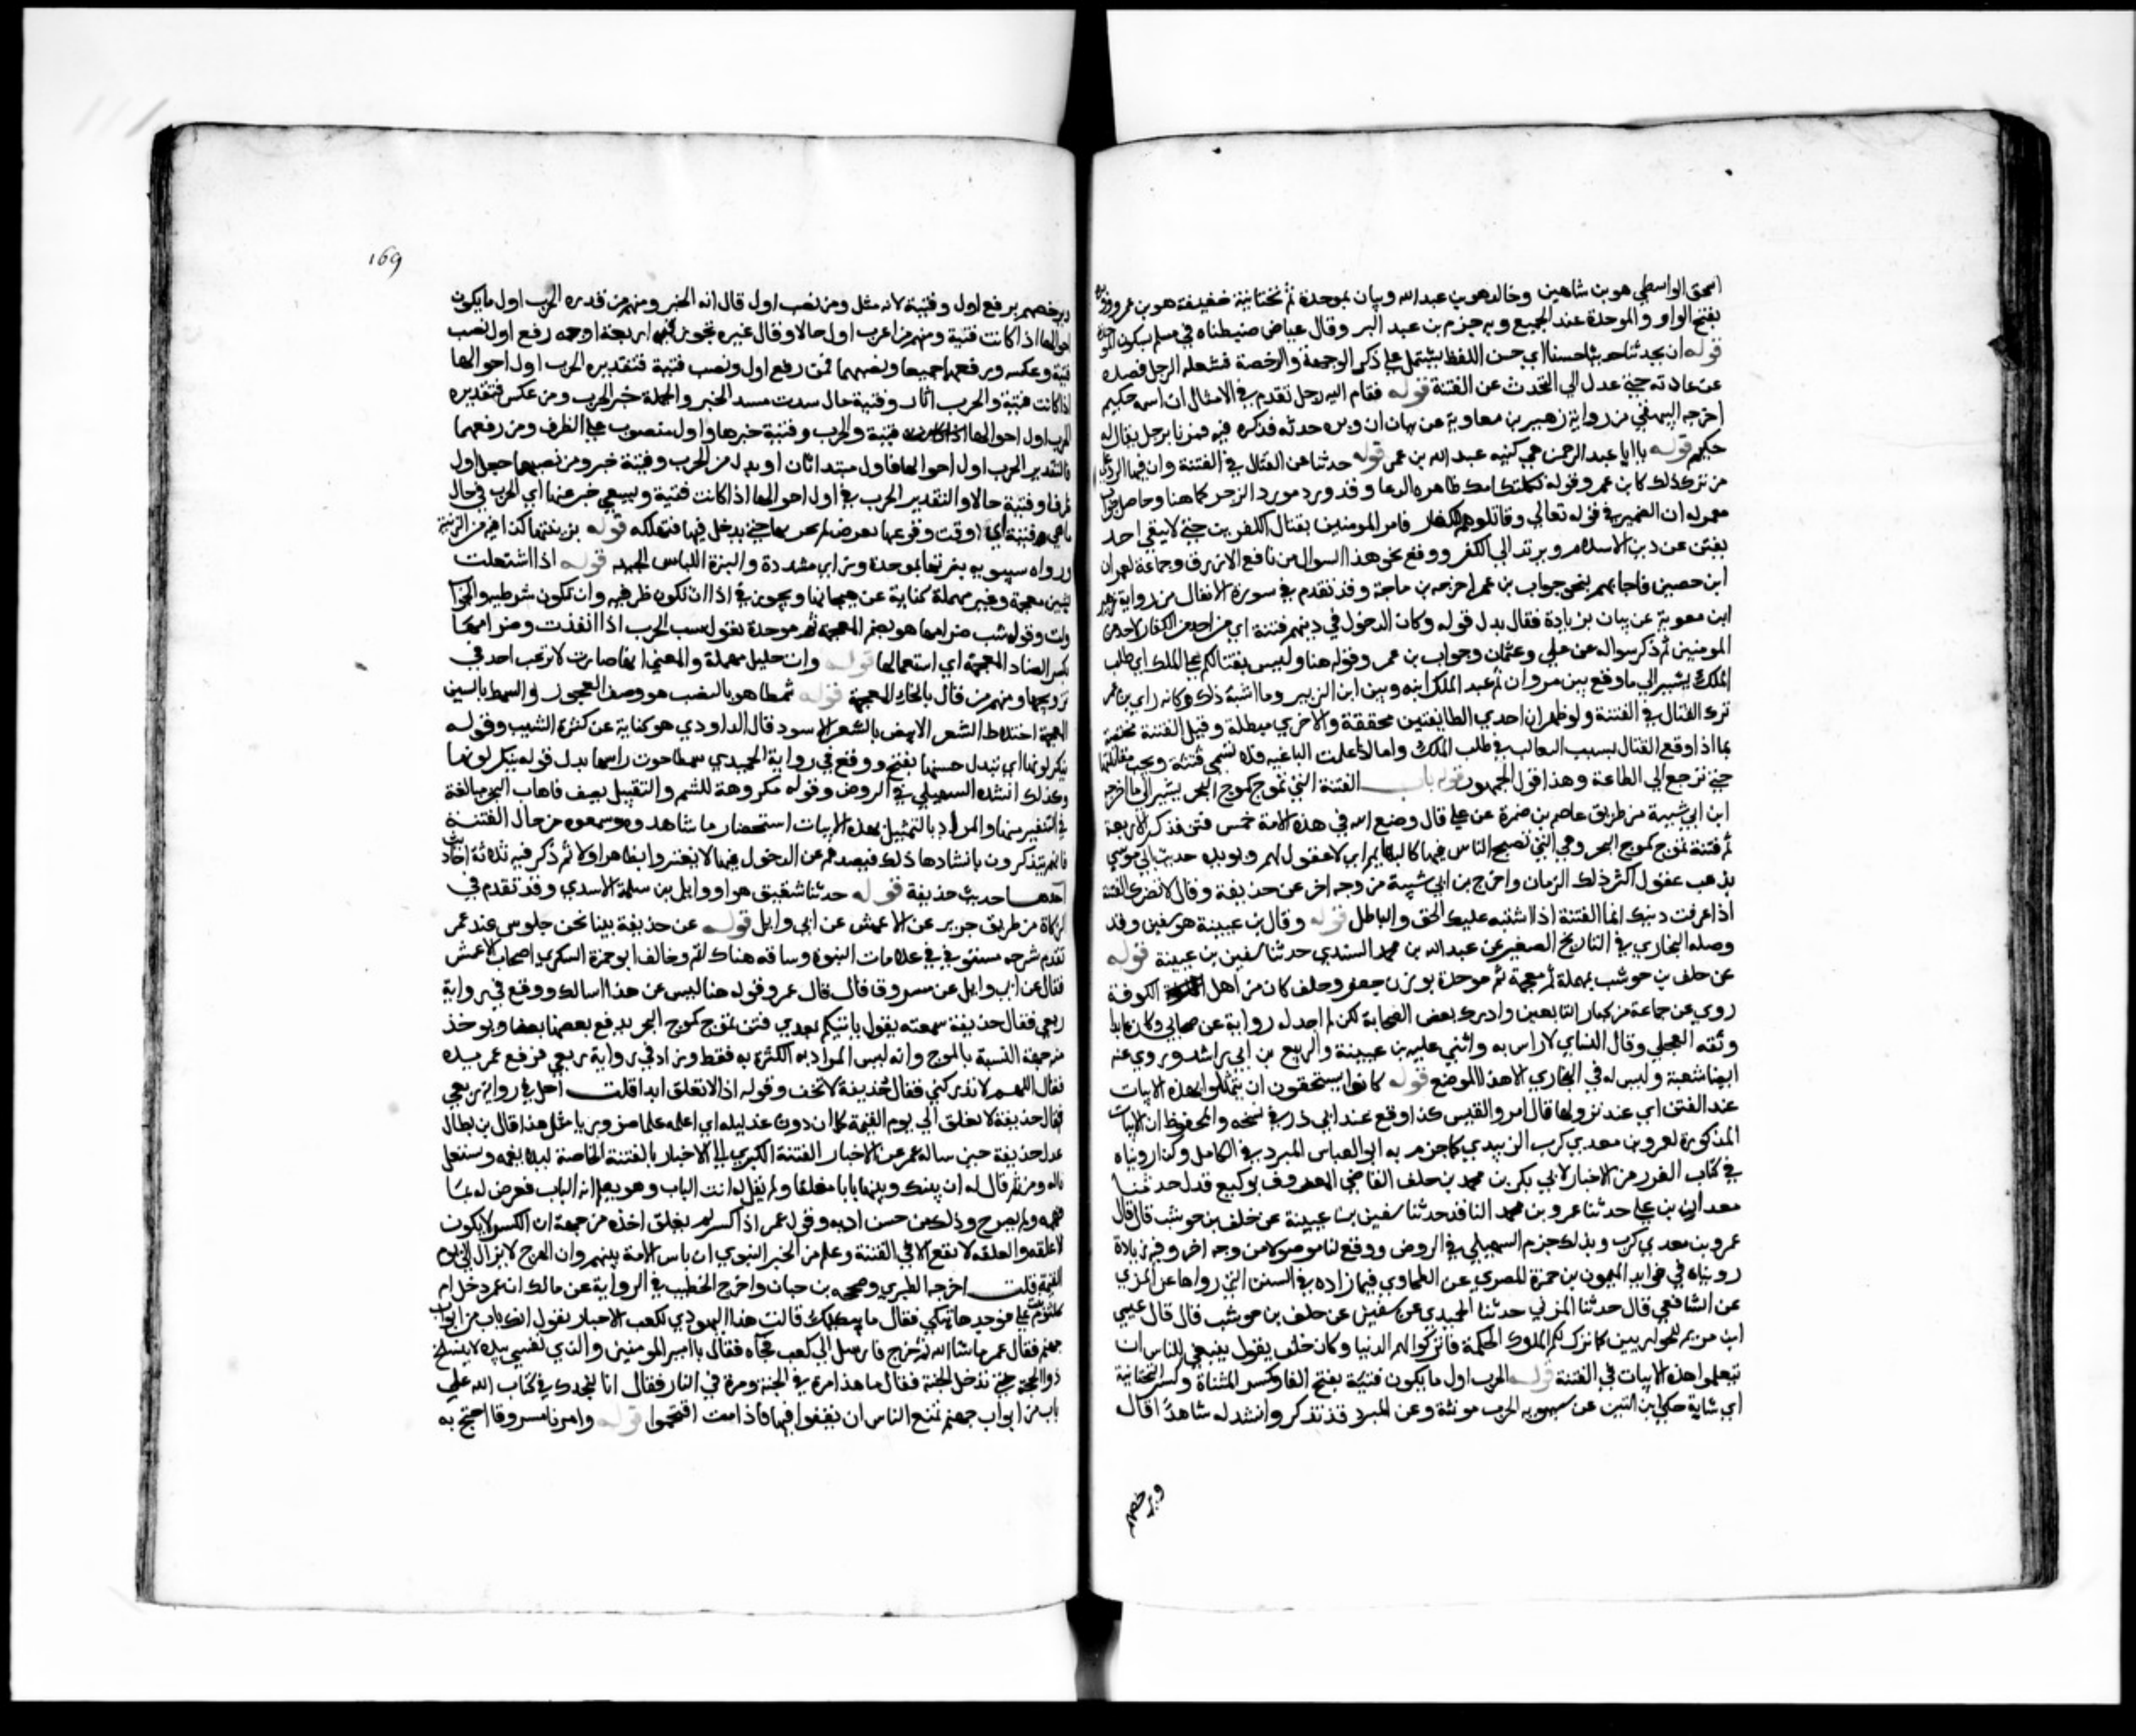 اسحق الواسطي هو بن شاهين وخالد هو بن عبد الله وبيان بموحدة ثم تحتانية خفيفة هو بن عمرو ووبره
بفتح الواو والموحدة عند الجميع وبه جزم بن عبد البر وقال عياض ضبطناه في مسلم بسكون الموحدة
قوله ان يحدثنا حديثا حسنا اي حسن اللفظ يشتمل على ذكر الرحمة والرخصة فشغله الرجل فصده
عن عادته حتى عدل الى التحدث عن الفتنة قوله فقام اليه رجل تقدم في الانفال ان اسمه حكيم
اخرجه البيهقي من رواية زهير بن معاوية عن بيان ان وبره حدثه فذكره فيه فمررنا برجل يقال له
حكيم قوله يا ابا عبد الرحمن هي كنيه عبد الله بن عمر قوله حدثنا عن القتال في الفتنة وان فيها الرد على
من ترك ذلك كابن عمر وقوله ثكلتك امك ظاهره الدعا وقد ورد مورد الزجر كما هنا وحاصل جواب
عمر له ان الضمير في قوله تعالى وقاتلوهم للكفار فامر المومنين بقتال الكافرين حتى لا يبقى احد
يفتن عن دين الاسلام ويرتد الى الكفر ووقع نحو هذا السوال من نافع الازرق وجماعة لعمران
ابن حصين فاجابهم بنحو جواب بن عمر اخرجه بن ماجة وقد تقدم في سورة الانفال من رواية زهير
ابن معوية عن بيان بزيادة فقال بدل قوله وكان الدخول في دينهم فتنة اي من احد من الكفار لاحد من
المومنين ثم ذكر سواله عن علي وعثمان وجواب بن عمر وقوله هنا وليس بقتالكم على الملك اي طلب
الملك يشير الى ما وقع بين مروان ثم عبد الملك ابنه وبين ابن الزبير وما اشبه ذلك وكان راي بن عمر
ترك القتال في الفتنة ولو ظهر ان احدي الطايفتين محققة والاخرى مبطلة وقيل الفتنة مختصة
بما اذا وقع القتال بسبب التغالب في طلب الملك واما اذا علمت الباغيه فلا تسمى فتنة ويجب مقاتلتها
حتى ترجع الى الطاعة وهذا قول الجمهور قوله باب الفتنة التي تموج كموج البحر يشير الى ما اخرجه
ابن ابي شيبة من طريق عاصم بن ضمرة عن علي قال وضع الله في هذه الامة خمس فتن فذكر الاربعة
ثم فتنة تموج كموج البحر وهي التي تصبح الناس فيها كالبهايم اي لا عقول لهم ويويده حديث ابي موسى
يذهب عقول اكثر ذلك الزمان واخرج بن ابي شيبة من وجه اخر عن حذيفة وقال لا تضرك الفتنة
اذا عرفت دينك انما الفتنة اذا اشتبه عليك الحق والباطل قوله وقال بن عيينة هو سفين وقد
وصله البخاري في التاريخ الصغير عن عبد الله بن محمد السندي حدثنا سفين بن عيينة قوله
عن خلف بن حوشب بمهملة ثم معجمة ثم موحدة بوزن جعفر وخلف كان من اهل الكوفة
روى عن جماعة من كبار التابعين وادرك بعض الصحابة لكن لم اجد له رواية عن صحابي وكان عابدا
وثقه العجلي وقال النساي لا باس به واثنى عليه بن عيينة والربيع بن ابي راشد وروى عنه
ايضا شعبة وليس له في البخاري الا هذا الموضع قوله كانوا يستحقون ان يتمثلوا بهذه الابيات
عند الفتن اي عند نزولها قال امرو القيس كذا وقع عند ابي ذر في نسخه والمحفوظ ان الابيات
المذكورة لعمرو بن معدي كرب الزبيدي كما جزم به ابو العباس المبرد في الكامل وكذا رويناه
في كتاب الغرر من الاخبار لابي بكر بن محمد بن خلف القاضي المعروف بوكيع قال حدثنا
معدان بن علي حدثنا عمرو بن محمد الناقد حدثنا سفين بن عيينة عن خلف بن حوشب قال قال
عمرو بن معدي كرب وبذلك جزم السهيلي في الروض ووقع لنا موصولا من وجه اخر وفيه زيادة
رويناه في فوايد الميمون بن حمزة المصري عن الطحاوي فيما زاده في السنن التي رواها عن المزني
عن الشافعي قال حدثنا المزني حدثنا الحميدي عن سفين عن خلف بن حوشب قال قال عيسى
ابن مريم للحواريين كما ترك لكم الملوك الحكمة فاتركوا لهم الدنيا وكان خلف يقول ينبغي للناس ان
يتعلموا هذه الابيات في الفتنة قوله الحرب اول ما يكون فتية بفتح الفا وكسر المثناة وكسر التحتانية
اي شابة حكى ابن التين عن سيبويه الحرب مونثة وعن المبرد قد تذكر وانشد له شاهدا قال
وبعضهم
169
وبعضهم يرفع اول وفتية لانه مثل ومن نصب اول قال انه الخبر ومنهم من قدره الحرب اول ما يكون
احوالها اذا كانت فتية ومنهم من اعرب اول حالا وقال غيره يجوز فيه اربعة اوجه رفع اول ونصب
فتية وعكسه ورفعهما جميعا ونصبهما فمن رفع اول ونصب فتية فتقديره الحرب اول احوالها
اذا كانت فتية والحرب اثان وفتية حال سدت مسد الخبر والجملة خبر الحرب ومن عكس فتقديره
الحرب اول احوالها فتية والحرب وفتية خبرها واول منصوب على الظرف ومن رفعهما
فالتقدير الحرب اول احوالها فاول مبتدا ثان او بدل من الحرب وفتية خبر ومن نصبهما جعل اول
ظرفا وفتية حالا والتقدير الحرب في اول احوالها اذا كانت فتية ويسعى خبر عنها اي الحرب في حال
ما هي فتية اي وقت وقوعها حتى يدخل فيها فتهلكه قوله بزينتها كذا فيه من الزينة
ورواه سيبويه ببزتها بموحدة وزاي مشددة والبزة اللباس الجيد قوله اذا اشتعلت
بشين معجمة وعين مهملة كناية عن هيجانها ويجوز في اذا ان تكون ظرفيه وان تكون شرطيه والجواب
ولت وقوله شب ضرامها هو بضم المعجمة ثم موحدة يقول شب الحرب اذا اتقدت وضرامها
بكسر الضاد المعجمة اي اشتعالها قوله وان حليل بمهملة والمعنى انها صارت لا يرغب احد في
تزويجها ومنهم من قال بالخاء المعجمة قوله شمطا هو بالنصب هو وصف العجوز والشمط بالشين
المعجمة اختلاط الشعر الابيض بالشعر الاسود قال الداودي هو كناية عن كثرة الشيب وقوله
ينكر لونها اي تبدل حسنها بقبح ووقع في رواية الحميدي شمطا جزت راسها بدل قوله ينكر لونها
وكذلك انشده السهيلي في الروض وقوله مكروهة للشم والتقبيل يصف فاها بالبخر مبالغة
في التنفير منها والمراد بالتمثيل بهذه الابيات استحضار ما شاهدوه وسمعوه من حال الفتنة
فانهم يتذكرون بانشادها ذلك فيصدهم عن الدخول فيها لا يغتروا بظاهر اولا ثم ذكر فيه ثلاثة احاديث
احدها حديث حذيفة قوله حدثنا شقيق هو ابو وايل بن سلمة الاسدي وقد تقدم في
الزكاة من طريق جرير عن الاعمش عن ابي وايل قوله عن حذيفة بينا نحن جلوس عند عمر
تقدم شرحه مستوفى في علامات النبوة وساقه هناك اتم وخالف ابو حمزة السكري اصحاب الاعمش
فقال عن ابي وايل عن مسروق قال قال عمر وقوله هنا ليس عن هذا اسالك ووقع في رواية
ربعي فقال حذيفة سمعته يقول ياتيكم بعدي فتن تموج كموج البحر يدفع بعضها بعضا ويوخذ
منه جهة التشبيه بالموج وانه ليس المراد به الكثرة به فقط وزاد في رواية ربعي فرفع عمر يده
فقال اللهم لا تدركني فقال حذيفة لا تخف وقوله اذا لا يغلق ابدا قلت اجل في رواية ربعي
فقال حذيفة لا يغلق الى يوم القيمة كما ان دون غد ليله اي اعلمه علما ضروريا مثل هذا قال بن بطال
عدل حذيفة حين ساله عمر عن الاخبار الفتنة الكبرى الى الاخبار بالفتنة الخاصة ليلا يغمه ويشتغل
باله ومن ثم قال له ان بينك وبينها بابا مغلقا ولم يقل له انت الباب وهو يعلم انه الباب فعرض له بما
فهمه ولم يصرح وذلك من حسن ادبه وقول عمر اذا كسر لم يغلق اخذه من جهة ان الكسر لا يكون
الا غلبه والغلبه لا تقع الا في الفتنة وعلم من الخبر النبوي ان باس الامة بينهم وان الهرج لا يزال الى يوم
القيمة قلت اخرجه الطبري وصححه بن حبان واخرج الخطيب في الرواية عن مالك ان عمر دخل ام
كلثوم بنت علي فوجدها تبكي فقال ما يبكيك قالت هذا اليهودي لكعب الاحبار يقول انك باب من ابواب
جهنم فقال عمر ما شا الله ثم خرج فارسل الى كعب فجاه فقال يا امير المومنين والذي نفسي بيده لا ينسلخ
ذو الحجة حتى تدخل الجنة فقال ما هذا مرة في الجنة ومرة في النار فقال انا لنجدك في كتاب الله على
باب من ابواب جهنم تمنع الناس ان يقفوا فيها فاذا مت اقتحموا قوله وامرنا مسروقا احتج به